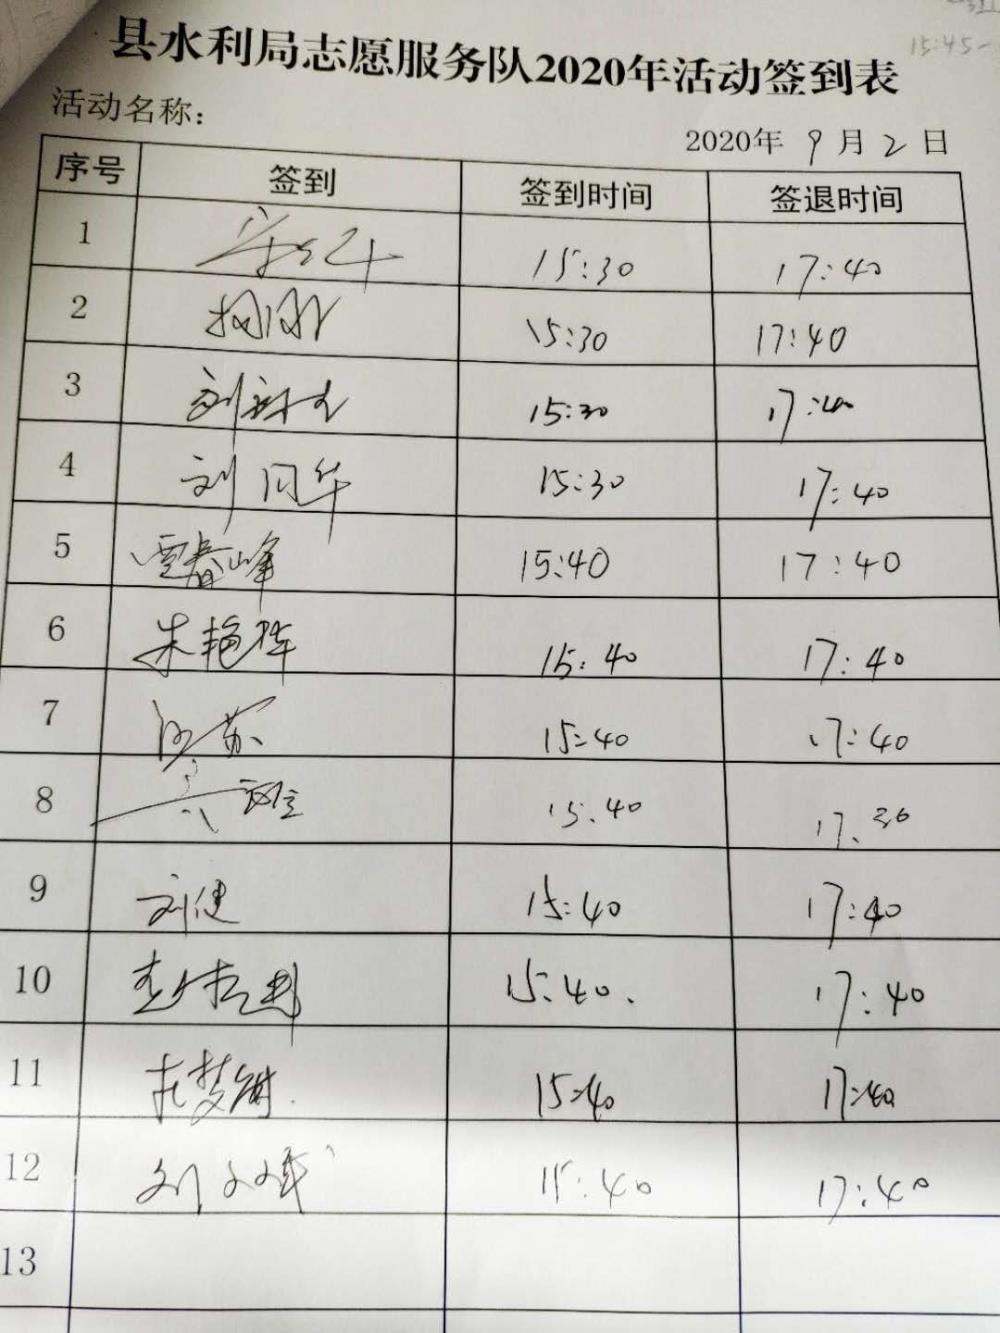 15:45-
县水利局志愿服务队2020年活动签到表
活动名称：
2020年 9 月 2 日
序号 签到 签到时间 签退时间
1 15:30 17:40
2 15:30 17:40
3 刘 15:30 17:40
4 刘同华 15:30 17:40
5 贾春峰 15:40 17:40
6 朱艳 15:40 17:40
7 苏 15:40 17:40
8 15:40 17:30
9 刘健 15:40 17:40
10 15:40. 17:40
11 梦 15:40 17:40
12 刘 15:40 17:40
13